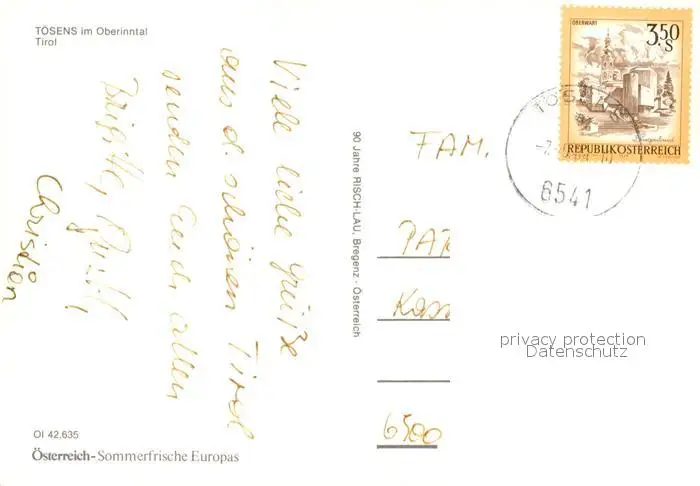 TÖSENS im Oberinntal
Tirol
Viele liebe Grüße
aus d. schönen Tirol
senden Euch allen
Brigitte,
Christian
OI 42.635
Österreich-Sommerfrische Europas
90 Jahre RISCH-LAU, Bregenz - Österreich
OBERWART
3,50
S
Burgenland
REPUBLIK ÖSTERREICH
6541
FAM.
PAR
Kass
6500
privacy protection
Datenschutz